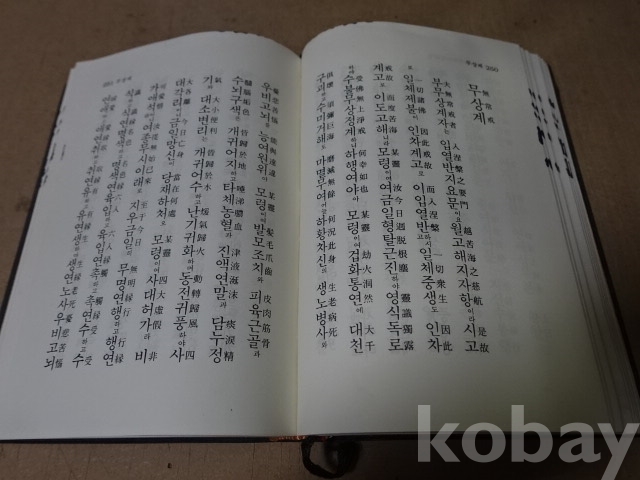 무상계 350
무상계
夫無常戒者 入涅槃之要門 越苦海之慈航 是故
부무상계자는 입열반지요문이요 월고해지자항이라 시고
一切諸佛 因此戒故 而入涅槃 一切衆生 因此
로 일체제불이 인차계고로 이입열반하시고 일체중생도 인차
戒故 而度苦海 某靈 汝今日 迥脫根塵 靈識獨露
계고로 이도고해하나니 모령이여 여금일형탈근진하야 영식독로
受佛無上淨戒 何幸如也 某靈 劫火洞然 大千
하수불무상정계하니 하행여야아 모령이여 겁화통연에 대천
俱壞 須彌巨海 磨滅無餘 何況此身 生老病死
구괴하야 수미거해도 마멸무여어든 하황차신의 생노병사와
憂悲苦惱 能與遠違 某靈 髮毛爪齒 皮肉筋骨
우비고뇌를 능여원위아 모령이여 발모조치와 피육근골과
髓腦垢色 皆歸於地 唾涕膿血 津液涎沫 痰淚精
수뇌구색은 개귀어지하고 타체농혈과 진액연말과 담누정
氣 大小便利 皆歸於水 煖氣歸火 動轉歸風 四
기와 대소변리는 개귀어수하고 난기귀화하며 동전귀풍하야 사
大各離 今日亡身 當在何處 某靈 四大虛假 非
대각리하면 금일망신이 당재하처오 모령이여 사대허가하야 비
可愛惜 汝從無始已來 至于今日 無明緣行 行緣
가애석이라 여종무시이래로 지우금일이 무명연행하고 행연
識 識緣名色 名色緣六入 六入緣觸 觸緣受 受
식하고 식연명색하고 명색연육입하고 육입연촉하고 촉연수하고 수
緣愛 愛緣取 取緣有 有緣生 生緣老死憂悲苦惱
연애하고 애연취하고 취연유하고 유연생하고 생연노사우비고뇌
무상계
kobay